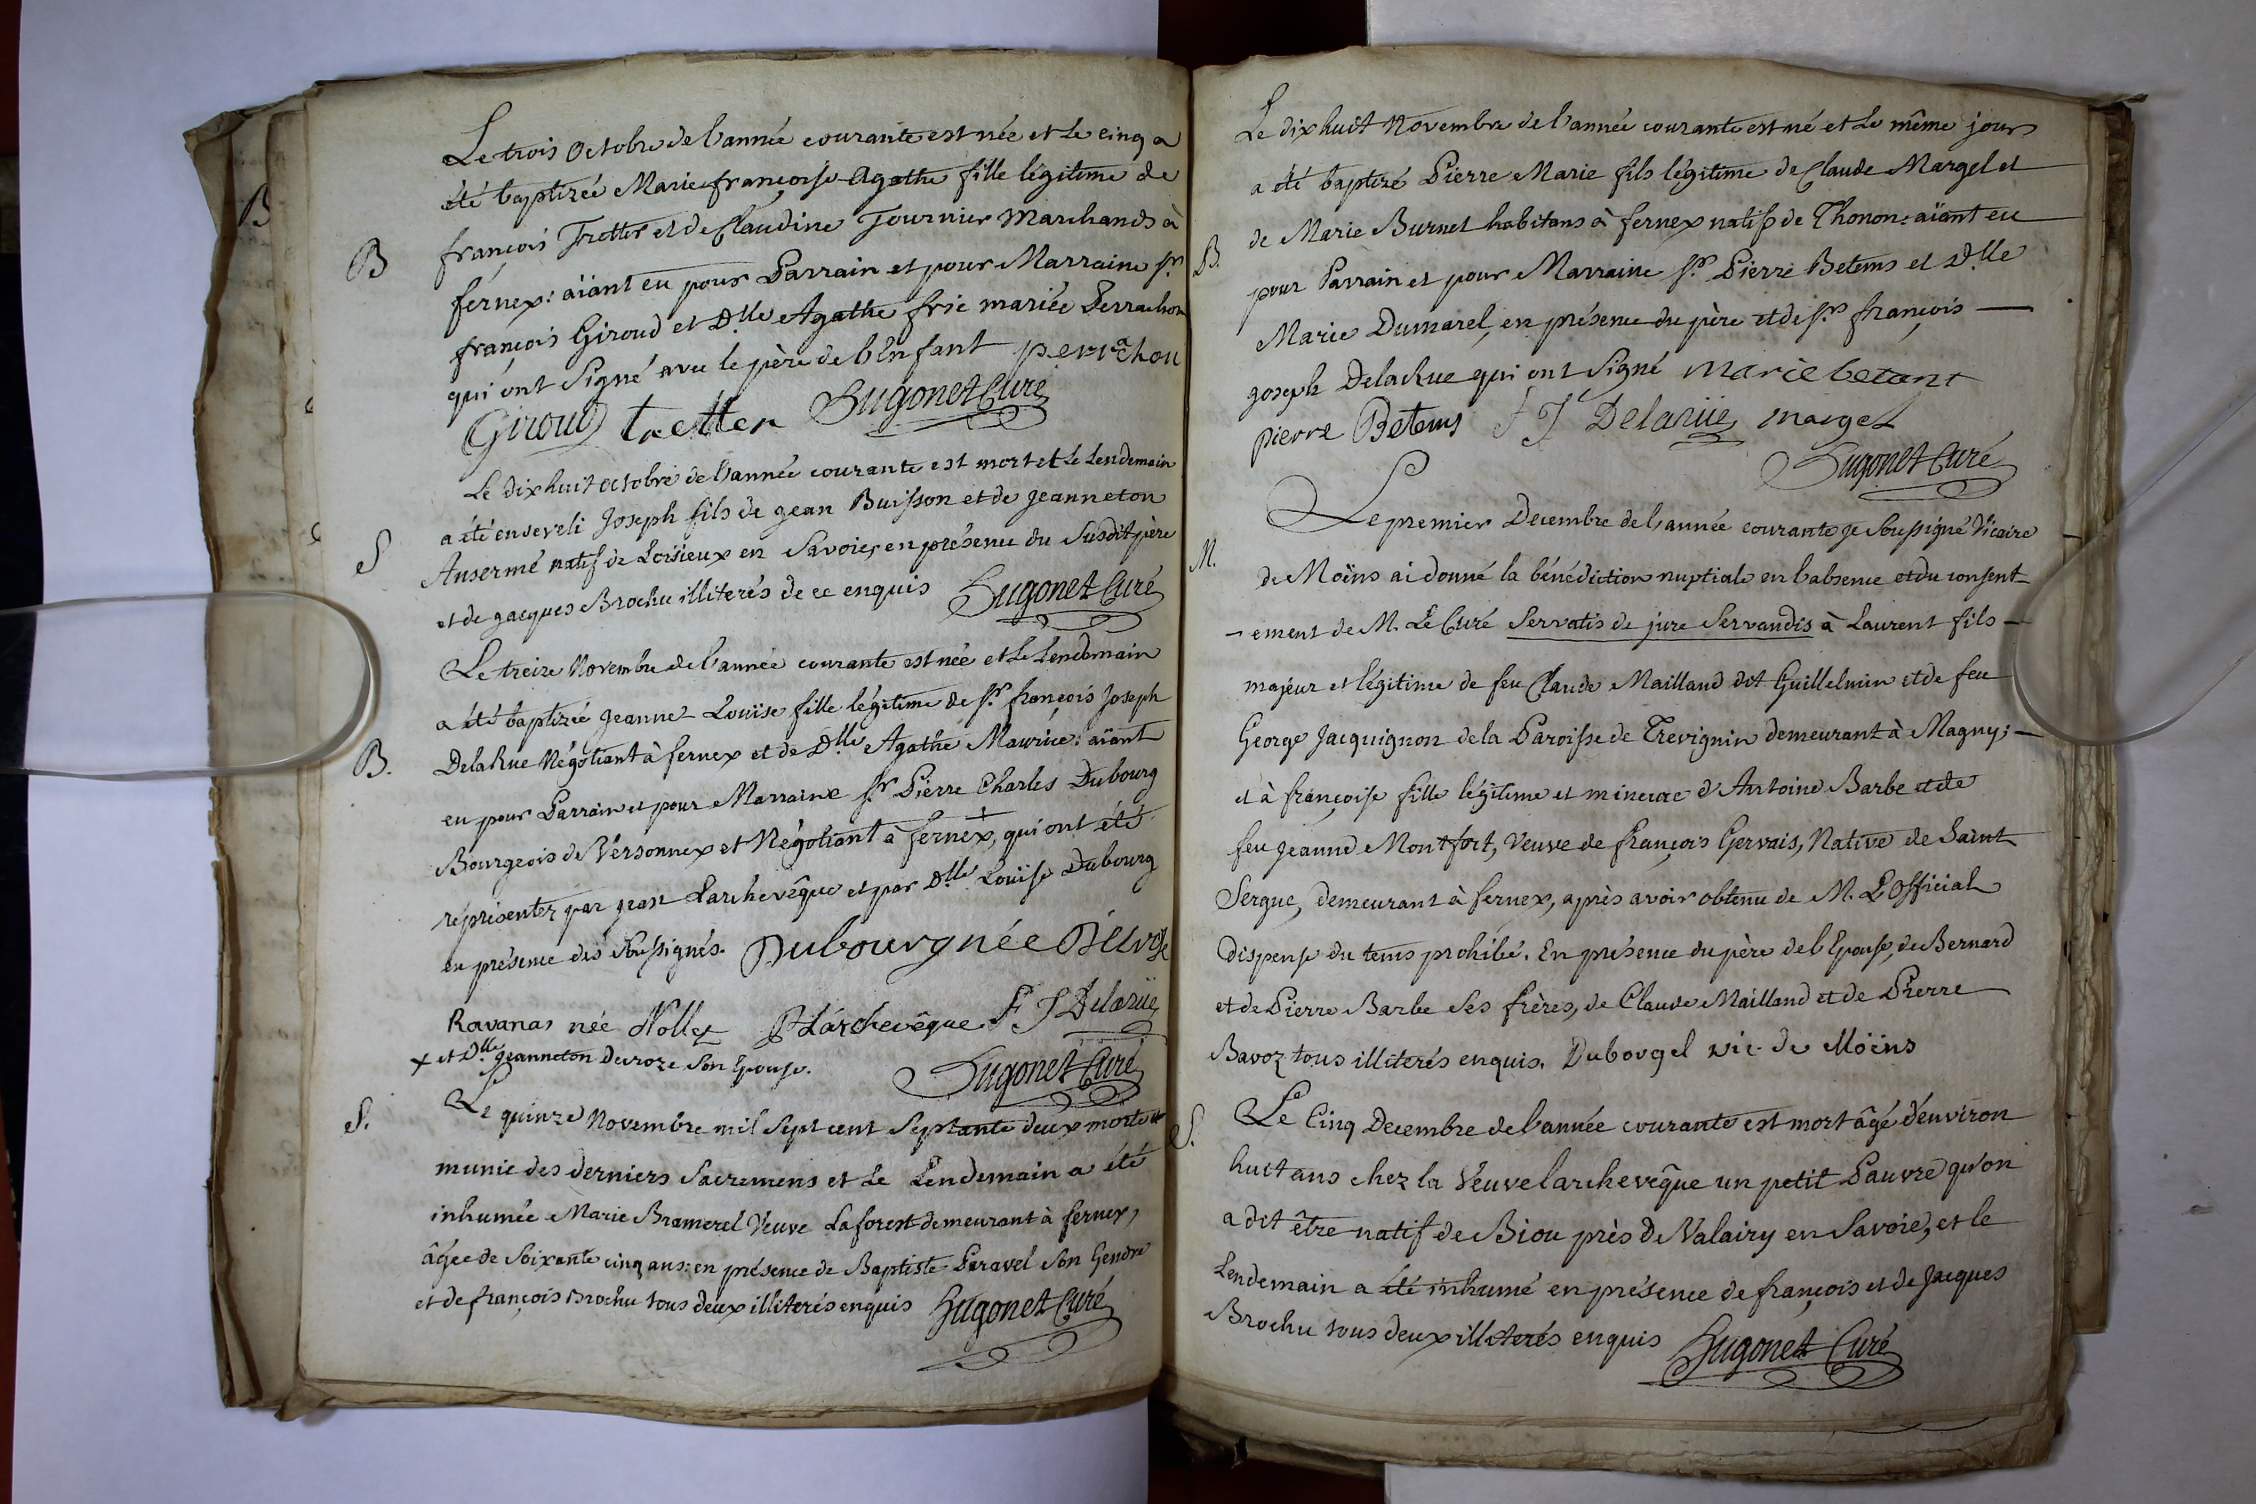 B
Le trois Octobre de l'année courante est née et Le cinq a
été baptizée Marie françoise Agathe fille légitime de
B
françois Tretter et de Claudine Tournier Marchands à
fernex: aïant eu pour Parrain et pour Marraine Sr
françois Giroud et Dlle Agathe fric mariée Perrachon
qui ont Signé avec le père de l'Enfant perrachou
Giroud tretter Hugonet Curé
Le dix huit octobre de l'année courante est mort et Le Lendemain
a été enseveli Joseph fils de jean Buisson et de jeanneton
S
Ansermé natif de Loisieux en Savoie, en présence du Susdit père
et de jacques Brochu illiterés de ce enquis Hugonet Curé
Le treize Novembre de l'année courante est née et Le Lendemain
a été baptizée jeanne Louïse fille légitime de Sr françois Joseph
B.
DelaRue Négotiant à fernex et de Dlle Agathe Maurice: aïant
eu pour Parrain et pour Marraine Sr Pierre Charles Dubourg
Bourgeois de Versonnex et Négotiant à fernex, + qui ont été
réprésentez par jean Larchevêque et par Dlle Louïse Dubourg
en présence des Soussignés. Dubourg née
Ravanas née Nollet Larchevêque F J Delarüe
+ et Dlle jeanneton Decroze Son Epouse.
Hugonet Curé
S.
Le quinze Novembre mil Sept cent Septante deux morte et
munie des derniers Sacremens et Le Lendemain a été
inhumée Marie Bramerel Veuve Laforest demeurant à fernex,
âgée de Soixante cinq ans: en présence de Baptiste Paravel Son Gendre
et de françois Brochu tous deux illiterés enquis Hugonet Curé
Le dix huit Novembre de l'année courante est né et Le même jour
a été baptizé Pierre Marie fils légitime de Claude Margel et
de Marie Burnet habitans à fernex natifs de Thonon: aïant eu
B.
pour Parrain et pour Marraine Sr Pierre Betems et Dlle
Marie Dumarel, en présence du père et de Sr françois
joseph DelaRue qui ont Signé marie betant
pierre Betems F J Delarüe margel
Hugonet Curé
Le premier Decembre de l'année courante je Soussigné Vicaire
M.
de Moëns ai donné la bénédiction nuptiale en l'absence et du consent-
-ement de M. Le Curé Servatis de jure Servandis à Laurent fils
majeur et légitime de feu Claude Mailland dit Guillelmin et de feu
George Jacquignon de la Paroisse de Trevignin demeurant à Magny;
et à françoise fille légitime et mineure d'Antoine Barbe et de
feu jeanne Montfort, Veuve de françois Gervais, Native de Saint
Sergue, demeurant à fernex, après avoir obtenu de M. L'Official
dispense du tems prohibé. En présence du père de l'Epouse, de Bernard
et de Pierre Barbe Ses frères, de Claude Mailland et de Pierre
Bavoz tous illiterés enquis. Duborgel vic. de Moëns
S.
Le Cinq Decembre de l'année courante est mort âgé d'environ
huit ans chez la Veuve larchevêque un petit Pauvre qu'on
a dit être natif de Biou près de Valairy en Savoie, et le
Lendemain a été inhumé en présence de françois et de Jacques
Brochu tous deux illiterés enquis Hugonet Curé